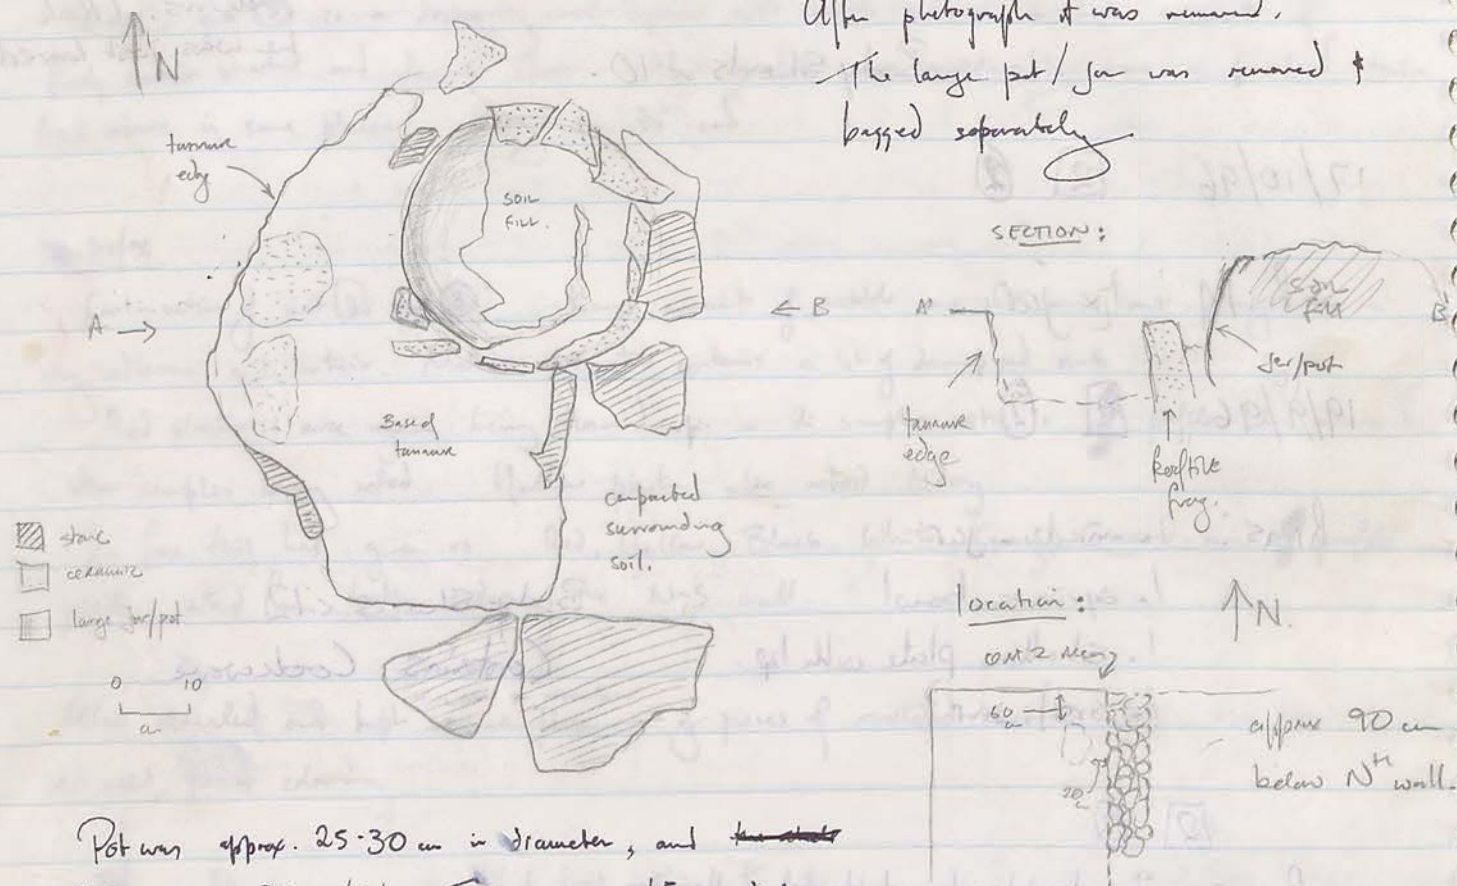 After photograph it was removed.
The large pot/jar was removed &
bagged separately
N
tannur
edge
SOIL
FILL.
A
B
Based
tannur
compacted
surrounding
soil.
stone
ceramic
large jar/pot
0 10
cm
SECTION:
A'
B'
soil
fill
jar/pot
tannur
edge
Rooftile
frag.
location:
N.
60
cm
20
cm
approx 90 cm
below Nth wall.
Pot was approx. 25-30 cm in diameter, and